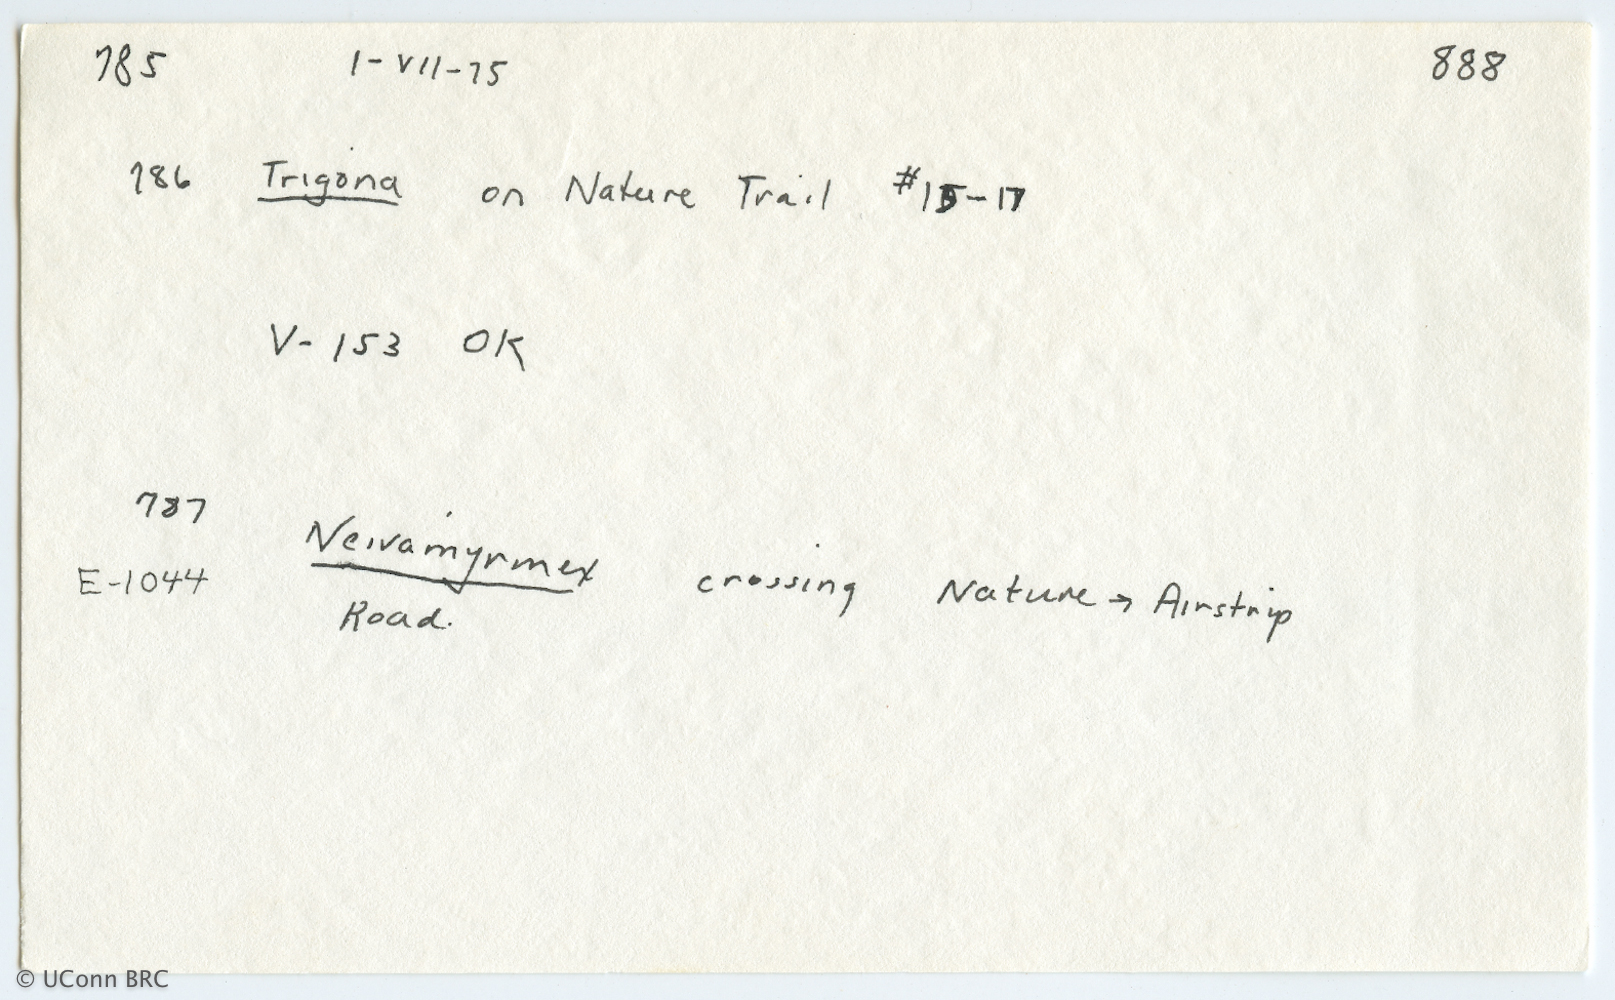 785 1-VII-75 888
786 Trigona on Nature Trail #15-17
V-153 OK
787
Neivamyrmex crossing Nature → Airstrip
E-1044
Road.
© UConn BRC